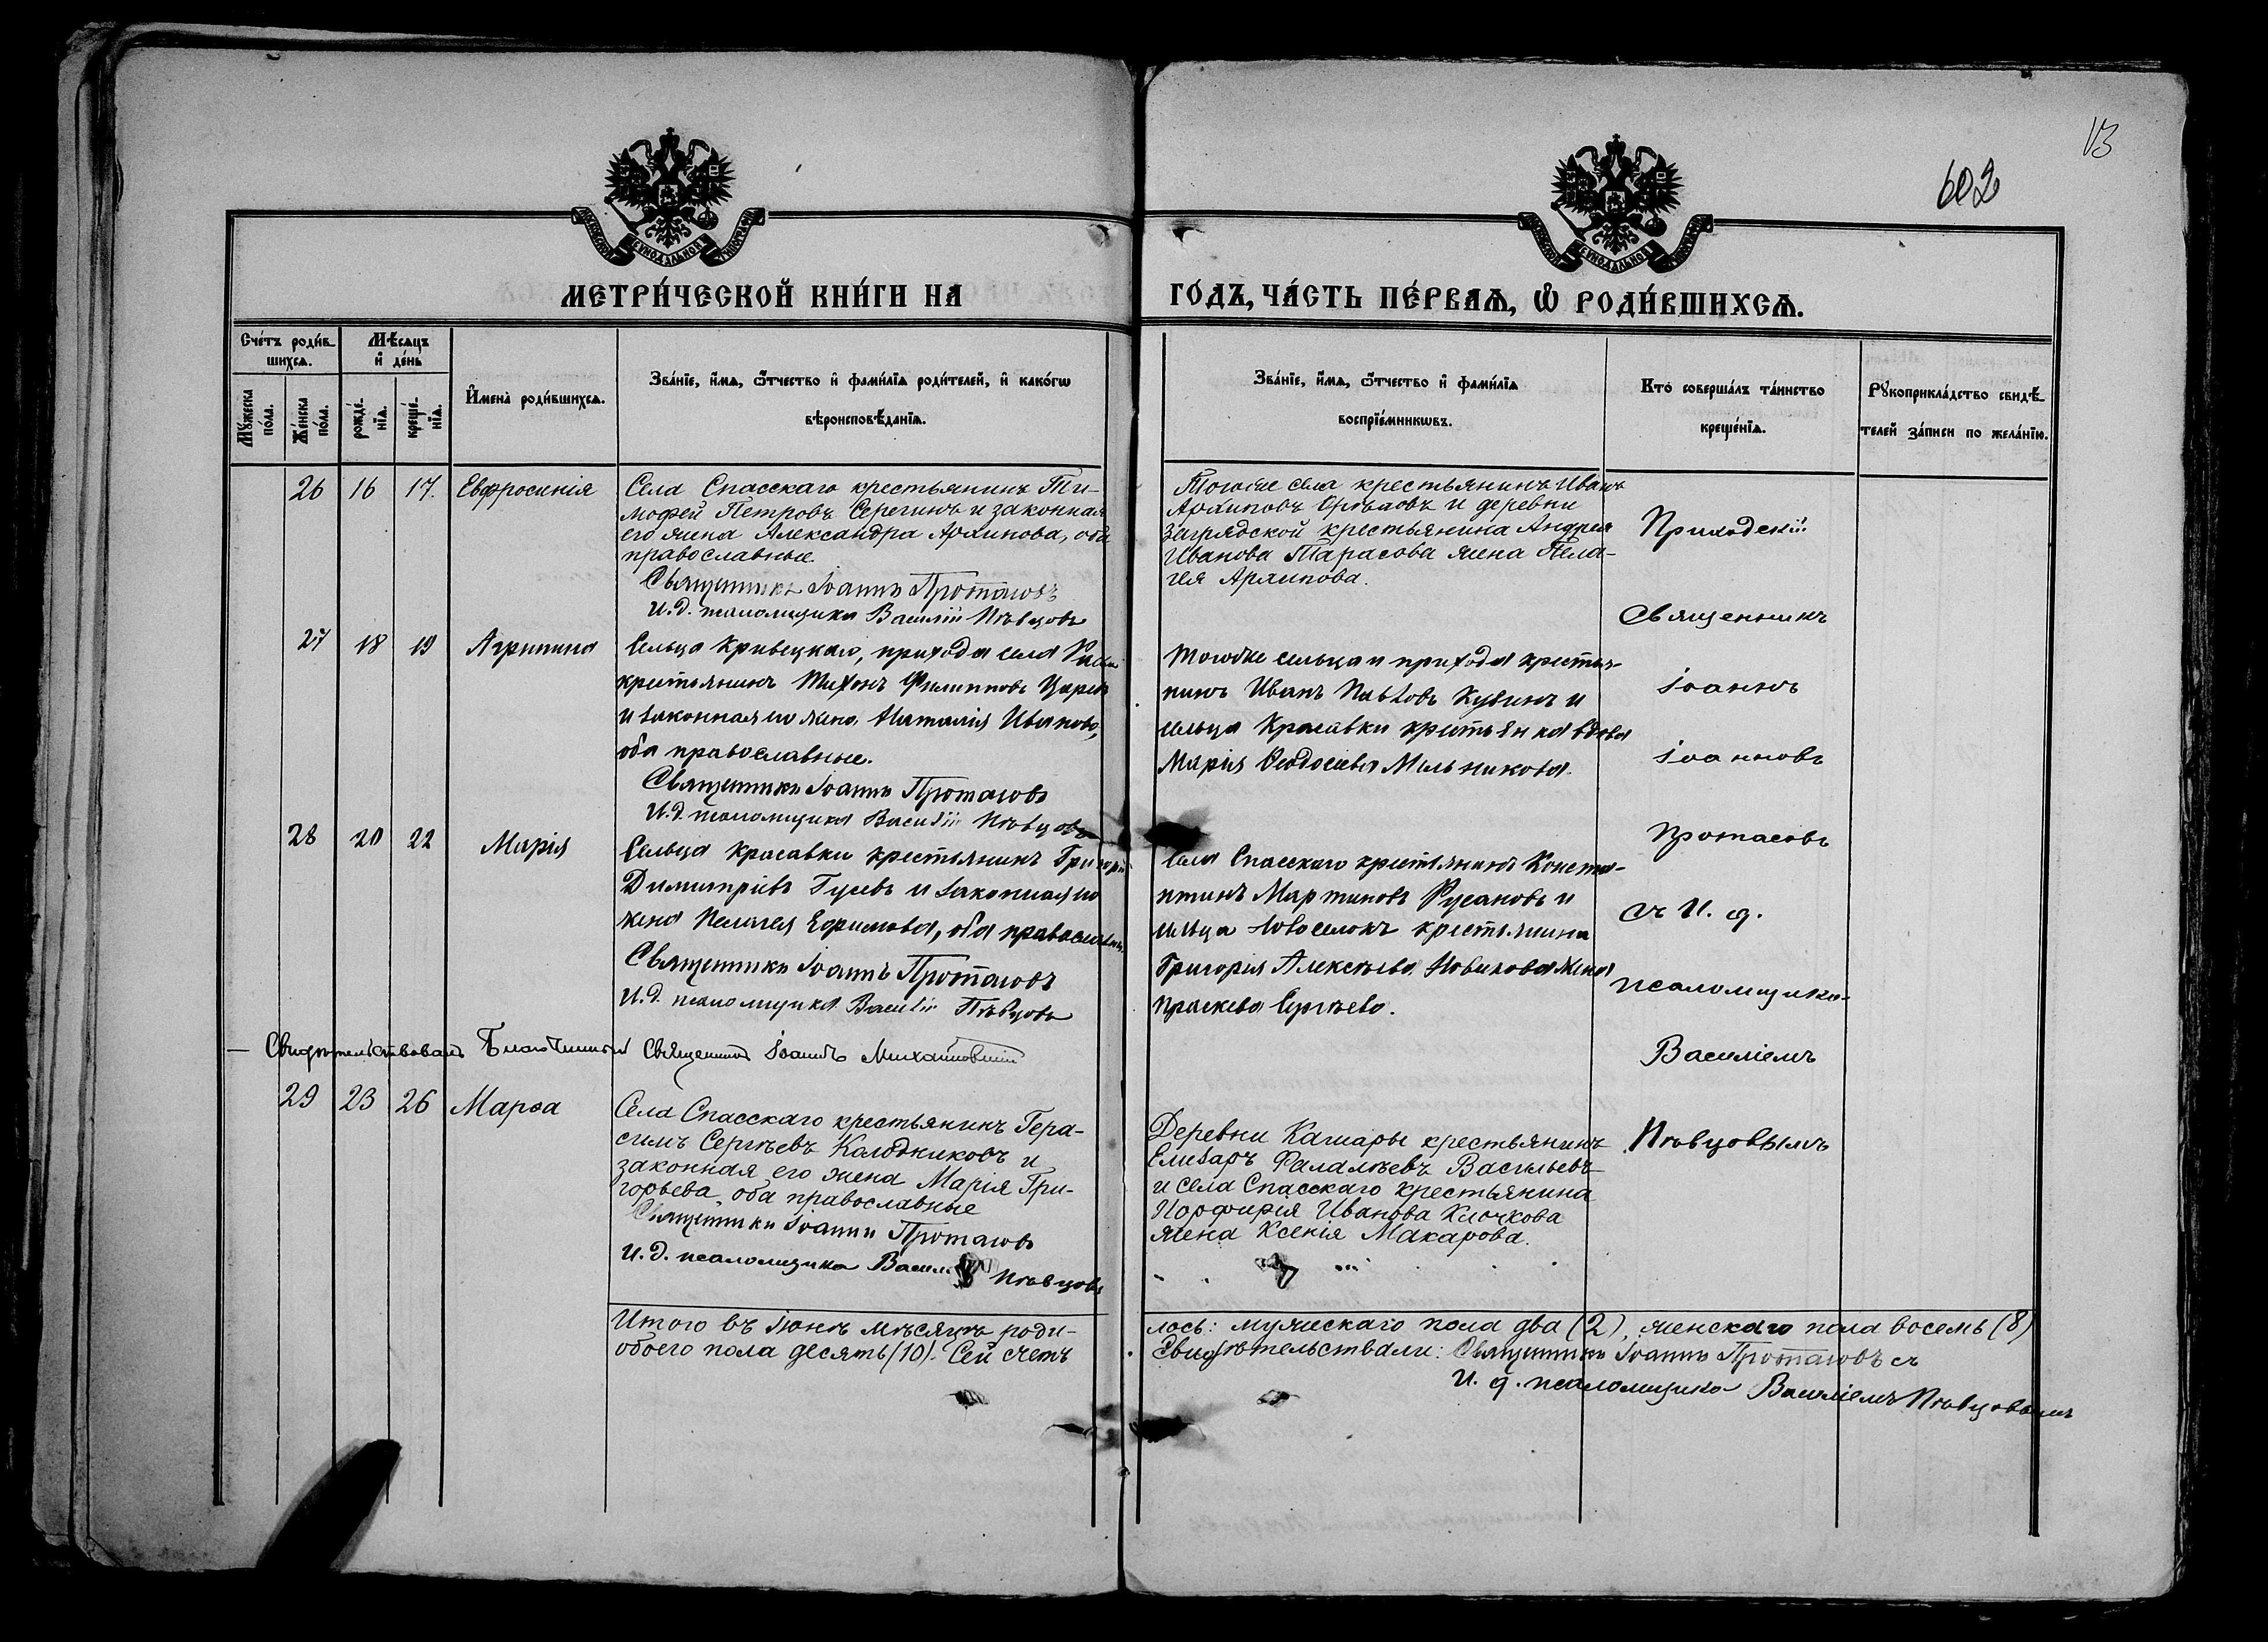 13
602
МЕТРИ́ЧЕСКОЙ КНИ́ГИ НА
ГО́ДЪ, ЧА́СТЬ ПЕ́РВАѦ, Ѡ҆ РОДИ́ВШИХСѦ.
Сче́тъ роди́в-
шихсѧ.
Мѣ́сѧцъ
и҆ де́нь
Мꙋ́жеска
по́ла.
Же́нска
по́ла.
рожде́-
нїѧ.
креще́-
нїѧ.
И҆мена̀ роди́вшихсѧ.
Зва́нїе, и҆́мѧ, ѻ҆́тчество и҆ фами́лїѧ роди́телей, и҆ како́гѡ
вѣроисповѣ́данїѧ.
Зва́нїе, и҆́мѧ, ѻ҆́тчество и҆ фами́лїѧ
воспрїе́мникѡвъ.
Кто̀ соверша́лъ та́инство
креще́нїѧ.
Рꙋкоприкла́дство свидѣ́-
телей за́писи по жела́нїю.
26 16 17. Евфросинія
Села Спасскаго крестьянинъ Ти-
мофей Петровъ Серегинъ и законная
его жена Александра Архипова, оба
православные.
Священникъ Іоаннъ Протасовъ
И.д. псаломщика Василій Пѣвцовъ
Тогоже села крестьянинъ Иванъ
Архиповъ и деревни
Загрядской крестьянина Андрея
Иванова Тарасова жена Пела-
гея Архипова.
27 18 19 Агрипина
Сельца Кривецкаго, прихода села
крестьянинъ Тихонъ Филипповъ
и законная его жена Наталія Иванова,
оба православные.
Священникъ Іоаннъ Протасовъ
И.д. псаломщика Василій Пѣвцовъ
Тогоже сельца и прихода крестья-
нинъ Иванъ Павловъ Кувинъ и
сельца Красавки крестьянка вдова
Марія Ѳеодосіева Мельникова.
28 20 22 Марія
Сельца Красавки крестьянинъ Григорій
Димитріевъ Гусевъ и законная его
жена Пелагея Ефимова, оба православные
Священникъ Іоаннъ Протасовъ
И.д. псаломщика Василій Пѣвцовъ
Села Спасскаго крестьянинъ Конста-
нтинъ Мартиновъ Русановъ и
сельца Новоселокъ крестьянина
Григорія Алексѣева Новикова жена
Праскева Сергѣева.
— Свидѣтельствовалъ Благочинный Священникъ Іоаннъ
29 23 26 Марѳа
Села Спасскаго крестьянинъ Гера-
симъ Сергѣевъ Колодниковъ и
законная его жена Марія Гри-
горьева, оба православные
Священникъ Іоаннъ Протасовъ
И.д. псаломщика Василій Пѣвцовъ
Деревни Кашары крестьянинъ
Елизаръ Фалалѣевъ Васильевъ
и села Спасскаго крестьянина
Порфирія Иванова Клочкова
жена Ксенія Макарова.
Приходскій
Священникъ
Іоаннъ
Іоанновъ
Протасовъ
съ И. д.
псаломщика
Василіемъ
Пѣвцовымъ
Итого въ Іюнѣ мѣсяцѣ роди-
обоего пола десять (10). Сей счетъ
лось: мужескаго пола два (2), женскаго пола восемь (8)
Свидѣтельствали: Священникъ Іоаннъ Протасовъ съ
И. д. псаломщика Василіемъ Пѣвцовымъ